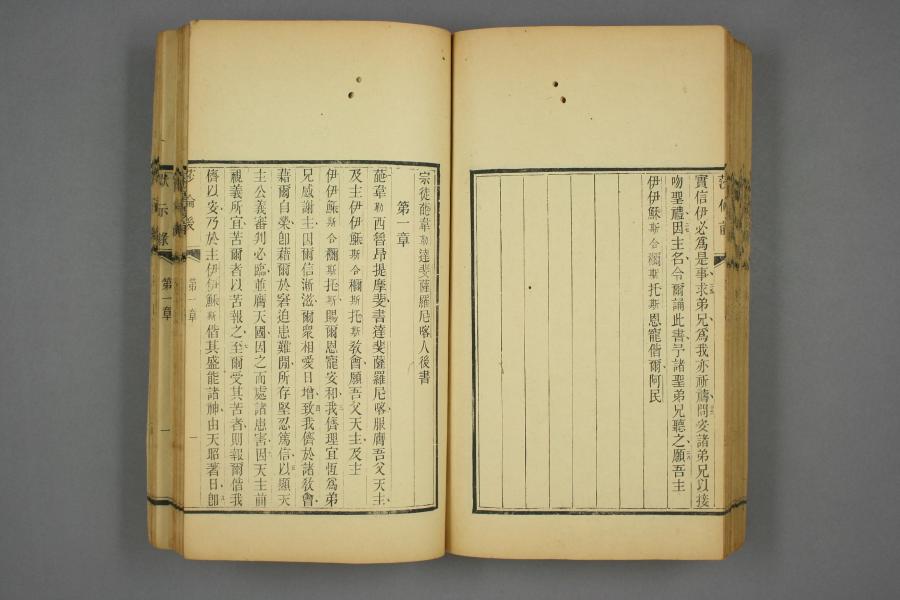 實信伊必爲是事求弟兄爲我亦祈禱問安諸弟兄以接
吻聖禮因主名令爾誦此書于諸聖弟兄聽之願吾主
伊伊穌斯合穪斯托斯恩寵偕爾阿民
宗徒葩韋勒達斐薩羅尼喀人後書
第一章
葩韋勒西魯昂提摩斐書達斐薩羅尼喀服膺吾父天主
及主伊伊穌斯合穪斯托斯敎會願吾父天主及主
伊伊穌斯合穪斯托斯賜爾恩寵安和我儕理宜恆爲弟
兄感謝主因爾信漸滋爾衆相愛日增致我儕於諸敎會
藉爾自榮卽藉爾於窘迫患難閒所存堅忍篤信以顯天
主公義審判必臨並膺天國因之而處諸患害因天主前
視義所宜苦爾者以苦報之至爾受其苦者則報爾偕我
儕以安乃於主伊伊穌斯偕其盛能諸神由天昭著日卽
後
第一章
一
默示錄
第一章
一